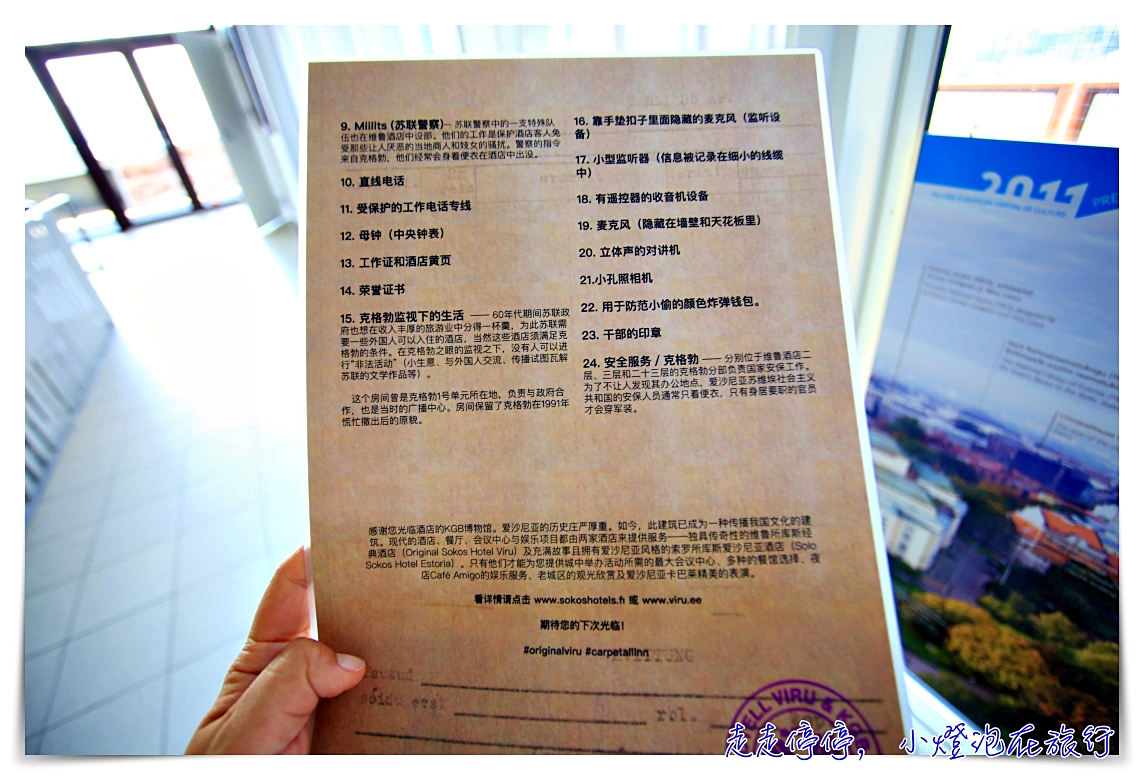 9. Miilits (苏联警察)— 苏联警察中的一支特殊队
伍也在维鲁酒店中设部。他们的工作是保护酒店客人免
受那些让人厌恶的当地商人和妓女的骚扰。警察的指令
来自克格勃，他们经常会身着便衣在酒店中出没。
10. 直线电话
11. 受保护的工作电话专线
12. 母钟（中央钟表）
13. 工作证和酒店黄页
14. 荣誉证书
15. 克格勃监视下的生活 —— 60年代期间苏联政
府也想在收入丰厚的旅游业中分得一杯羹，为此苏联需
要一些外国人可以入住的酒店，当然这些酒店须满足克
格勃的条件。在克格勃之眼的监视之下，没有人可以进
行“非法活动”（小生意、与外国人交流、传播试图瓦解
苏联的文学作品等）。
这个房间曾是克格勃1号单元所在地，负责与政府合
作，也是当时的广播中心。房间保留了克格勃在1991年
慌忙撤出后的原貌。
16. 靠手垫扣子里面隐藏的麦克风（监听设
备）
17. 小型监听器（信息被记录在细小的线缆
中）
18. 有遥控器的收音机设备
19. 麦克风（隐藏在墙壁和天花板里）
20. 立体声的对讲机
21.小孔照相机
22. 用于防范小偷的颜色炸弹钱包。
23. 干部的印章
24. 安全服务 / 克格勃 —— 分别位于维鲁酒店二
层、三层和二十三层的克格勃分部负责国家安保工作。
为了不让人发现其办公地点，爱沙尼亚苏维埃社会主义
共和国的安保人员通常只着便衣，只有身居要职的官员
才会穿军装。
感谢您光临酒店的KGB博物馆。爱沙尼亚的历史庄严厚重。如今，此建筑已成为一种传播我国文化的建
筑。现代的酒店、餐厅、会议中心与娱乐项目都由两家酒店来提供服务——独具传奇性的维鲁所库斯经
典酒店（Original Sokos Hotel Viru）及充满故事且拥有爱沙尼亚风格的索罗所库斯爱沙尼亚酒店（Solo
Sokos Hotel Estoria）。只有他们才能为您提供城中举办活动所需的最大会议中心、多种的餐馆选择、夜
店Café Amigo的娱乐服务、老城区的观光欣赏及爱沙尼亚卡巴莱精美的表演。
看详情请点击 www.sokoshotels.fi 或 www.viru.ee
期待您的下次光临！
#originalviru #carpetallinn
rol.
ELL VIRU & KGB
2011
PRE
走走停停，小燈泡在旅行